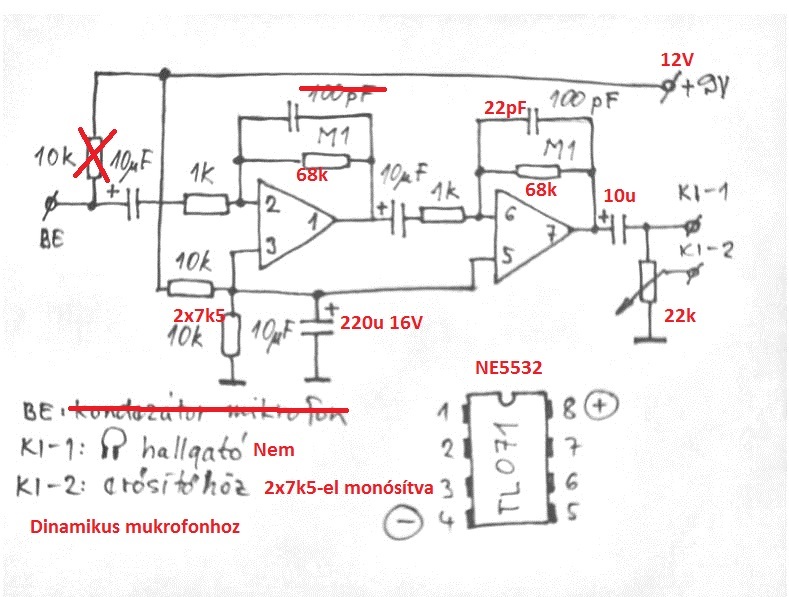 12V
+9V
100pF
22pF 100pF
M1
M1
10k
10µF
1K
68k
10µF
1k
68k
10u
KI-1
KI-2
BE
2
3
1
6
5
7
10k
2x7k5
10k
10µF
+
220u 16V
22k
NE5532
BE: kondezátor mikrofon
KI-1: hallgató Nem
KI-2: erősítőhöz 2x7k5-el monósítva
Dinamikus mukrofonhoz
TL071
1
2
3
4
8 +
7
6
5
-